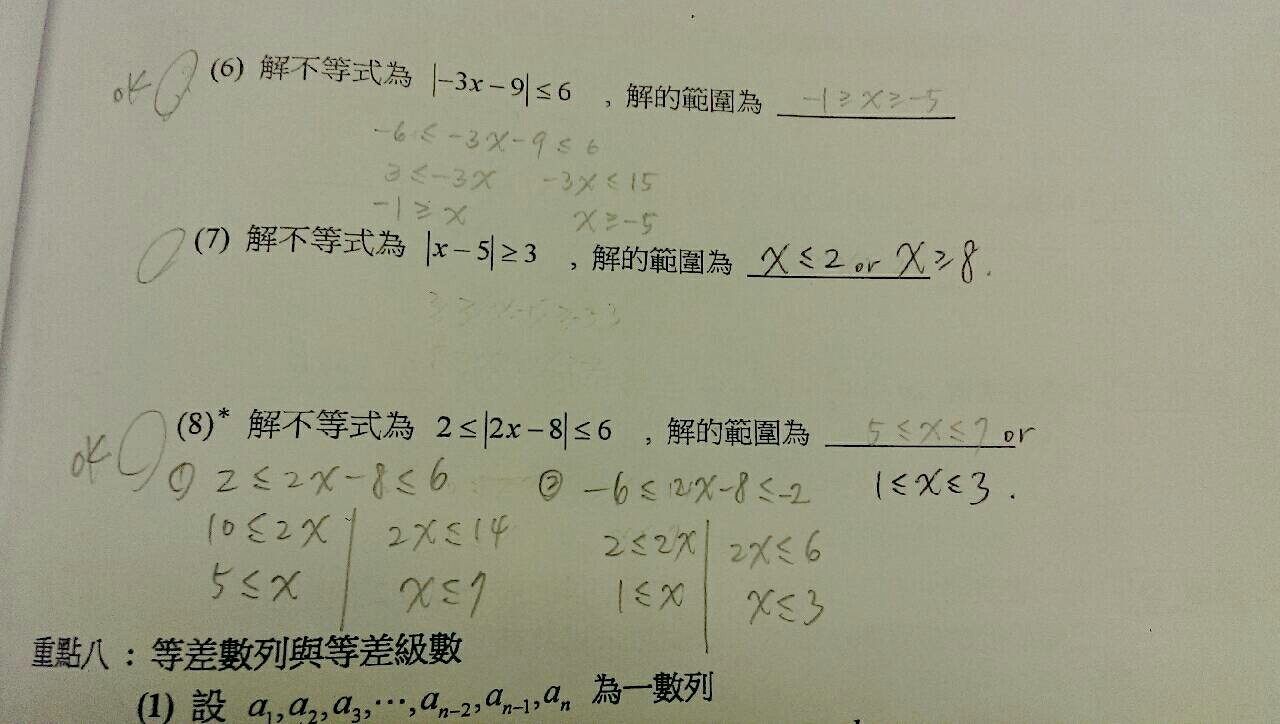 ok (6) 解不等式為 |-3x-9|≤6 ，解的範圍為 -1≥x≥-5
-6≤-3x-9≤6
3≤-3x -3x≤15
-1≥x x≥-5
(7) 解不等式為 |x-5|≥3 ，解的範圍為 x≤2 or x≥8.
ok (8)* 解不等式為 2≤|2x-8|≤6 ，解的範圍為 5≤x≤7 or
① 2≤2x-8≤6 ② -6≤2x-8≤-2 1≤x≤3.
10≤2x | 2x≤14 2≤2x | 2x≤6
5≤x | x≤7 1≤x | x≤3
重點八：等差數列與等差級數
(1) 設 a₁,a₂,a₃,⋯,aₙ₋₂,aₙ₋₁,aₙ 為一數列